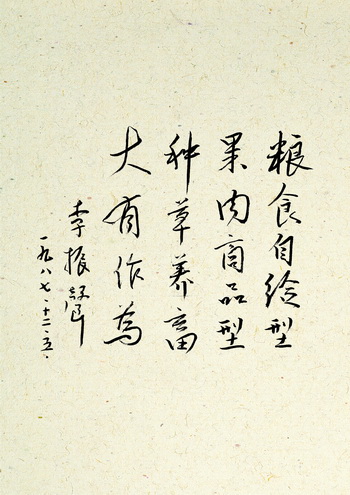 粮食自给型
果肉商品型
种草养畜
大有作為
李振声
一九八七·十二·五·